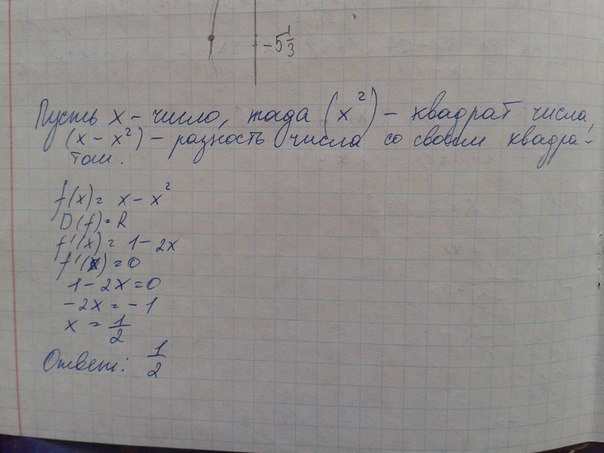 -5 1/3
Пусть x - число, тогда (x²) - квадрат числа,
(x - x²) - разность числа со своим квадра-
том.
f(x) = x - x²
D(f) = R
f'(x) = 1 - 2x
f'(x) = 0
1 - 2x = 0
-2x = -1
x = 1/2
Ответ: 1/2